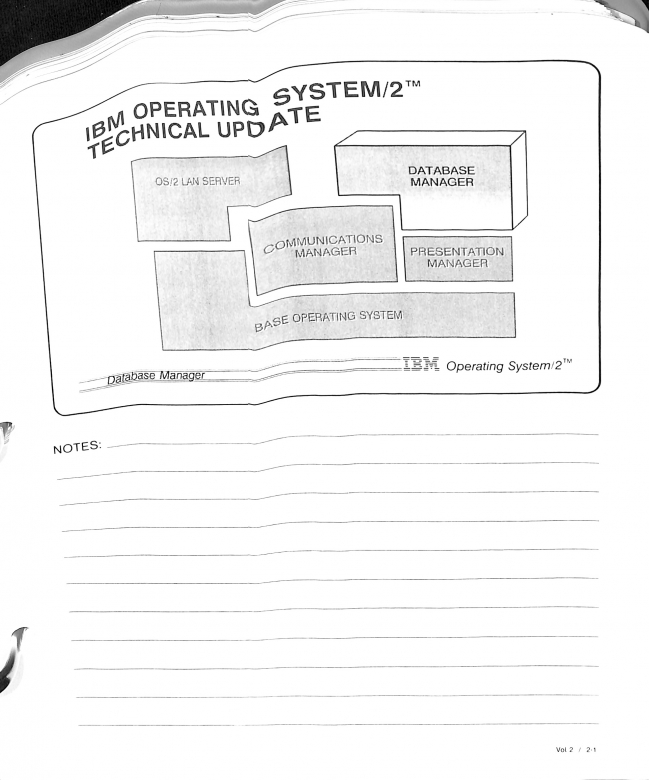 IBM OPERATING SYSTEM/2™
TECHNICAL UPDATE
OS/2 LAN SERVER
DATABASE
MANAGER
COMMUNICATIONS
MANAGER
PRESENTATION
MANAGER
BASE OPERATING SYSTEM
Database Manager
IBM Operating System/2™
NOTES:
Vol.2 / 2-1